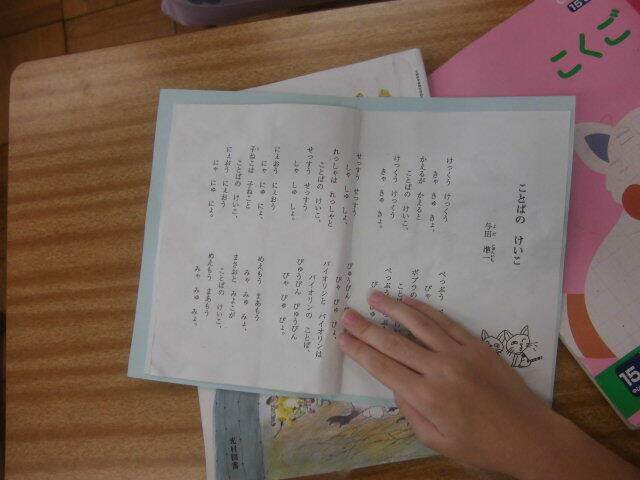 ことばの けいこ
与田 凖一
よだ じゅんいち
けっくう けっくう
きゃ きゅ きょ、
かえるが かえると
ことばの けいこ、
けっくう けっくう
きゃ きゅ きょ。
せっすう せっすう
しゃ しゅ しょ、
れっしゃは れっしゃと
ことばの けいこ、
せっすう せっすう
しゃ しゅ しょ。
にぇおう にぇおう
にゃ にゅ にょ、
子ねこは 子ねこと
ことばの けいこ、
にぇおう にぇおう
にゃ にゅ にょ。
ぺっぷう
ぴゃ
ポプラの
ぺっぷう
ぴゅうぴん
ぴゃ ぴゅ ぴょ、
バイオリンと バイオリンは
バイオリンの ことば、
ぴゅうぴん ぴゅうぴん
ぴゃ ぴゅ ぴょ。
めえもう まあもう
みゃ みゅ みょ、
まさおと みよこが
ことばの けいこ、
めえもう まあもう
みゃ みゅ みょ。
こくご
15
15
光村図書